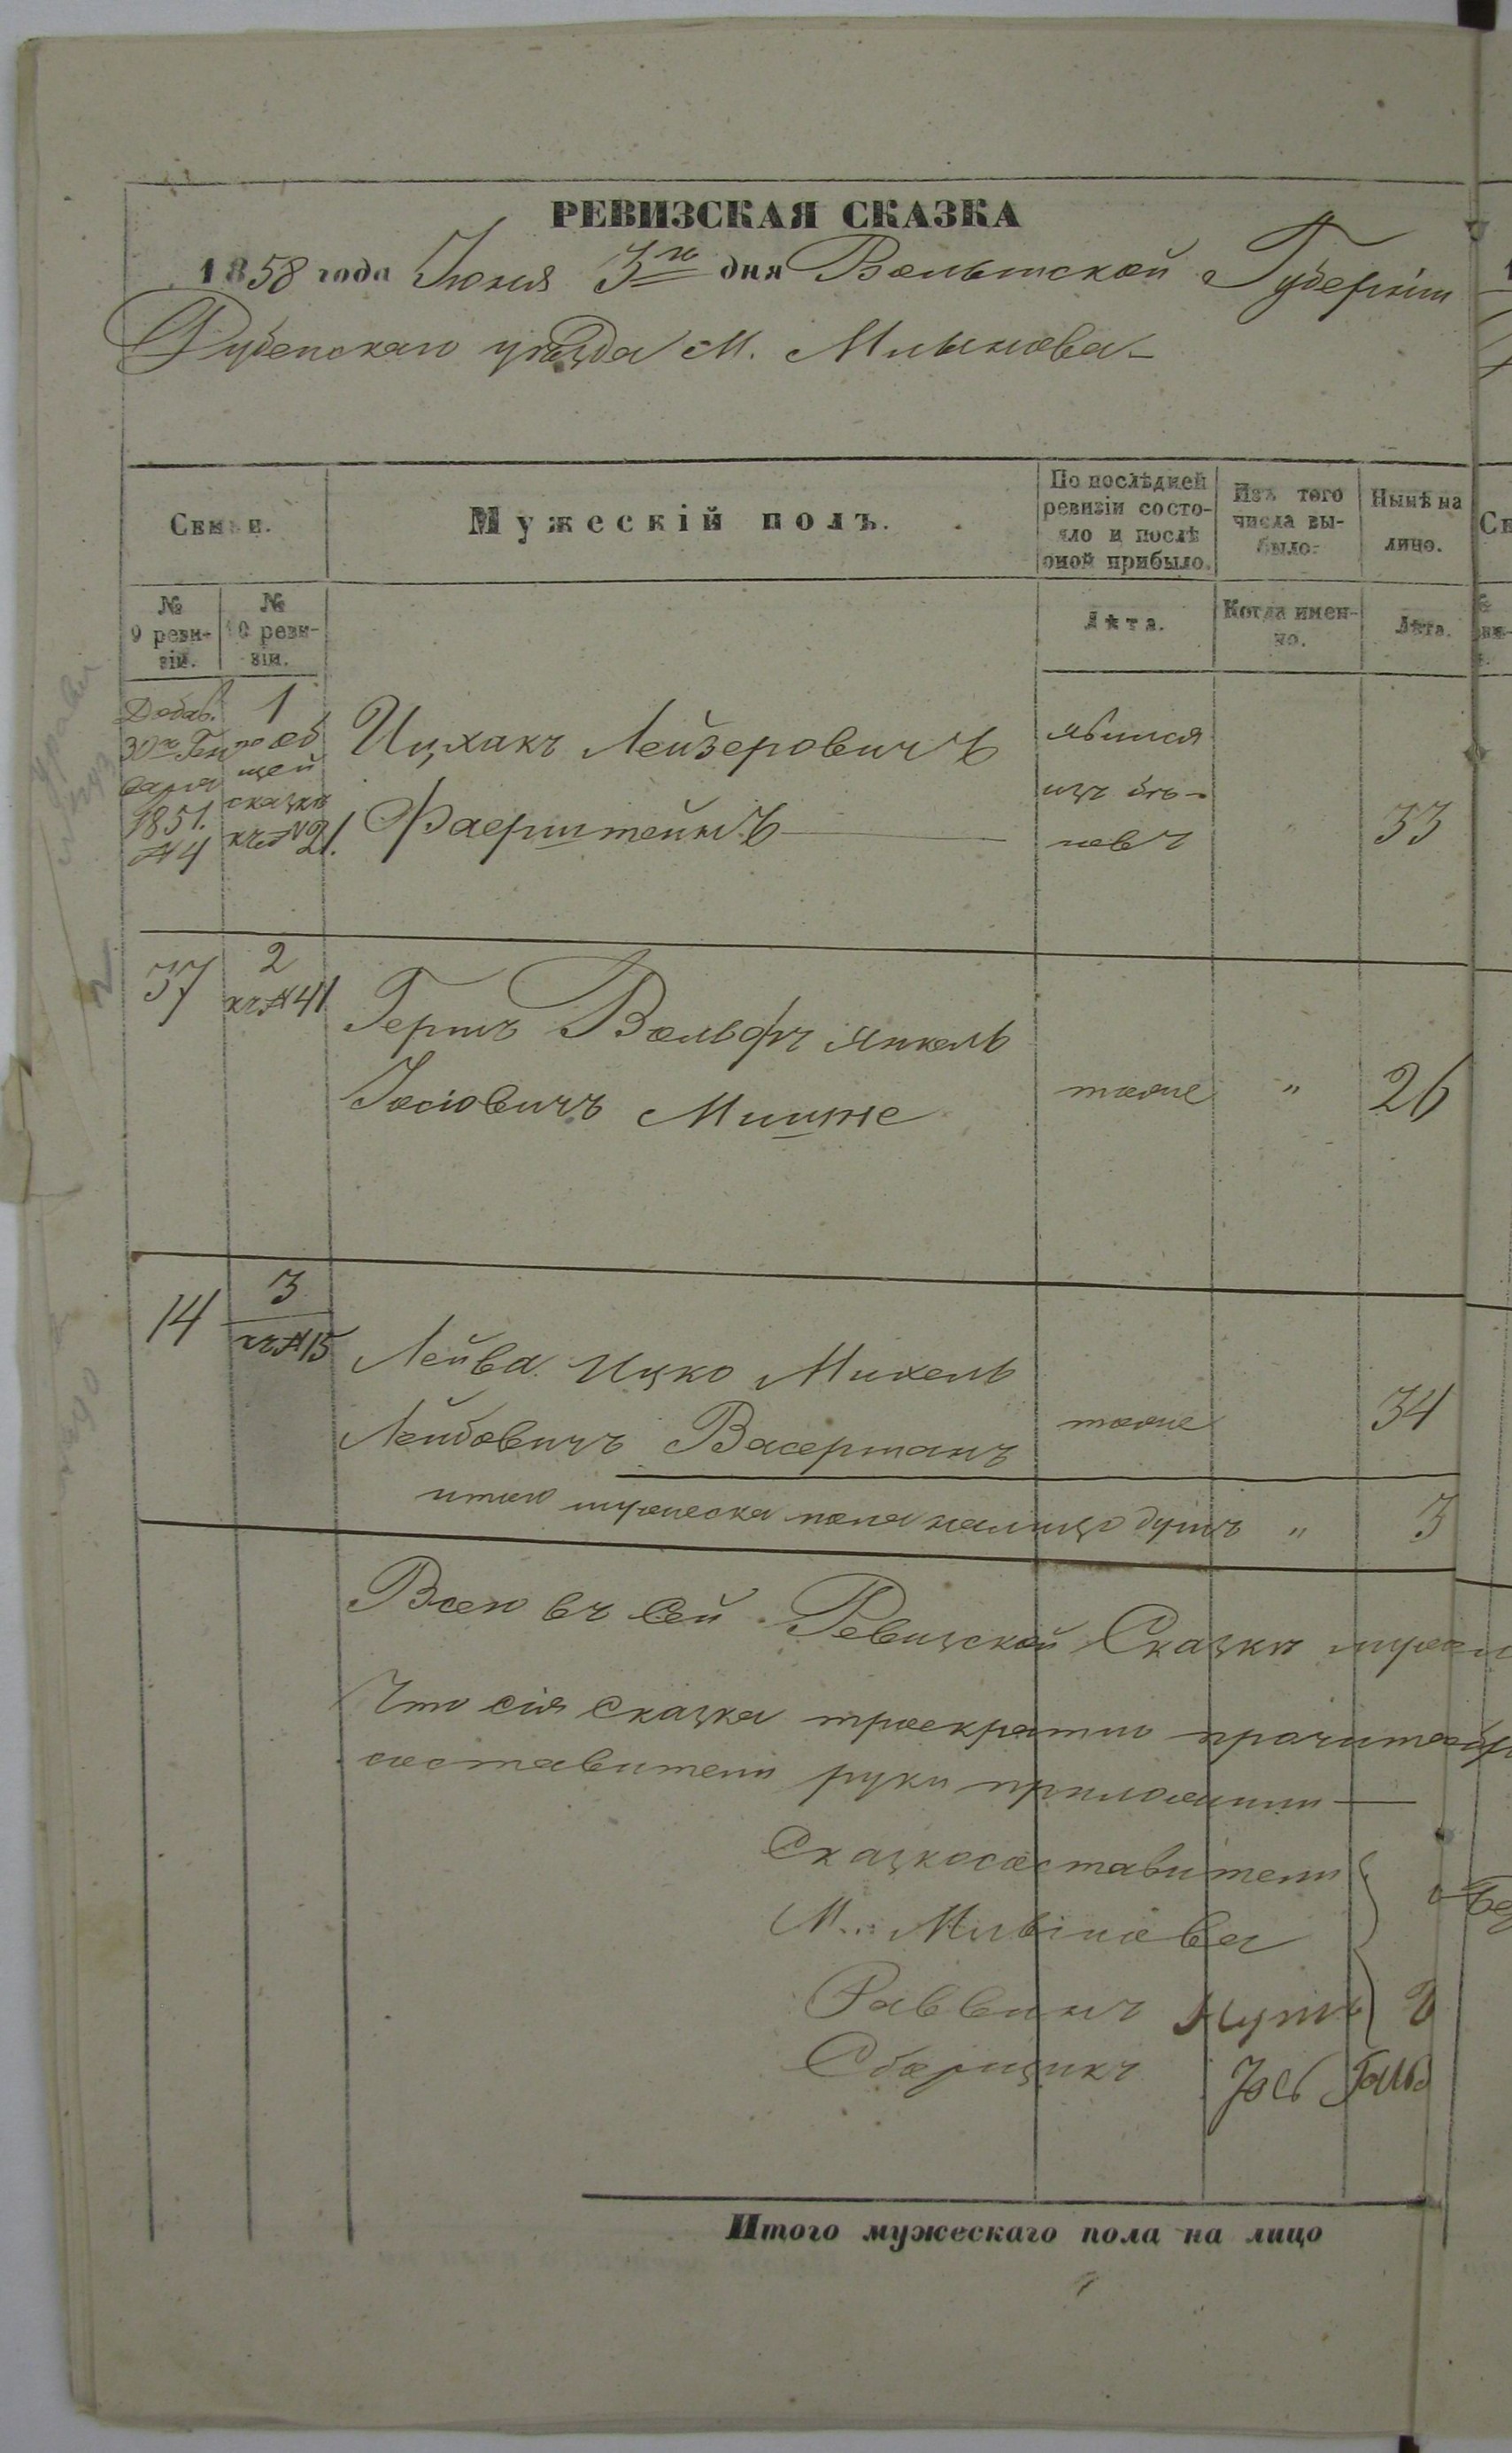 РЕВИЗСКАЯ СКАЗКА
1858 года Іюня 3го дня Волынской Губерніи
Дубенскаго уѣзда М. Млынова
Семьи.
Мужескій полъ.
По послѣдней ревизіи состояло и послѣ оной прибыло.
Изъ того числа выбыло.
Нынѣ на лицо.
№ 9 ревизіи.
№ 10 ревизіи.
Лѣта.
Когда именно.
Лѣта.
Добав. 30го Генваря 1851. №4
1 по общей сказкѣ къ №21.
Ицхакъ Лейзеровичъ
Фаерштейнъ
явился изъ бѣговъ
33
37
2 къ №41
Гершъ Вольфъ Янкель
Іосіовичъ
тоже " 26
14
3 къ №15
Лейба Ицко Михель
Лейбовичъ Васерманъ
тоже 34
итого мужеска пола налицо душъ " 3
Всего въ сей Ревизской Сказкѣ
Что сія Сказка троекратно
составители руки приложили
Сказкосоставители
М. Млынова
Раввинъ
Сборщикъ
Итого мужескаго пола на лицо